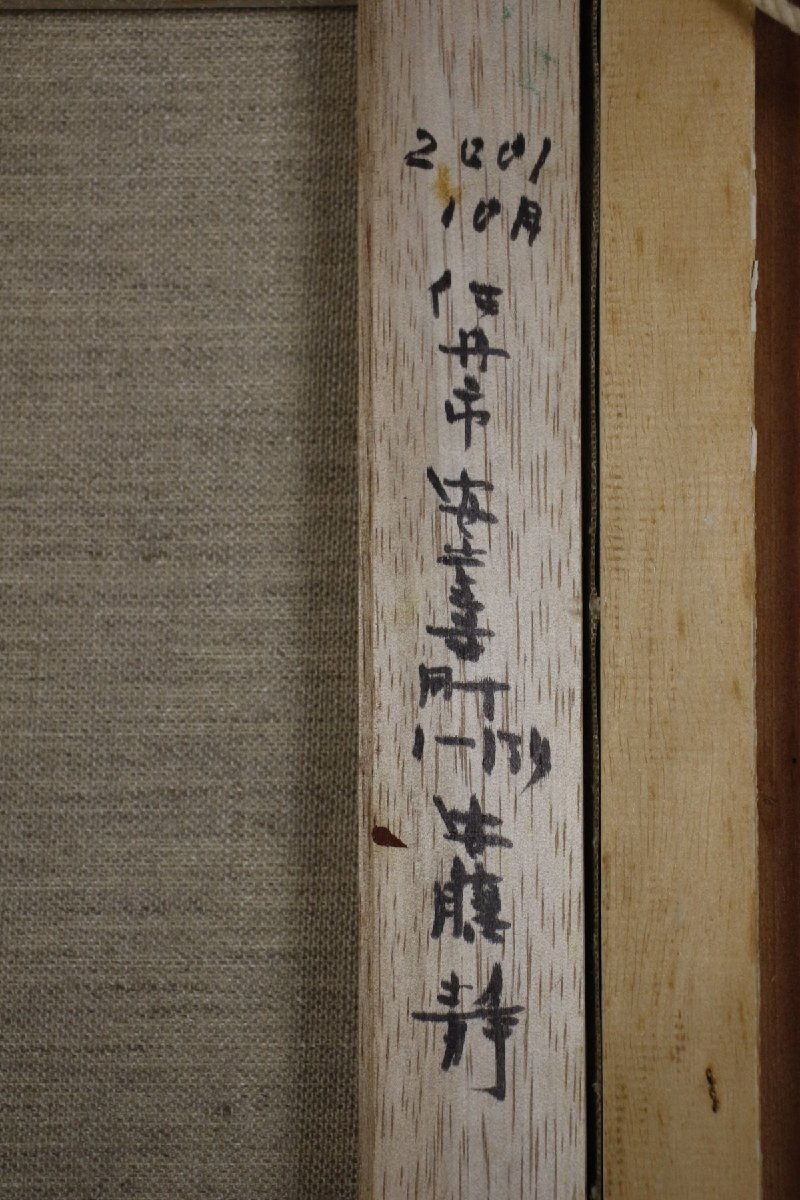 2001
10月
伊丹市 安堂寺町
安藤 静